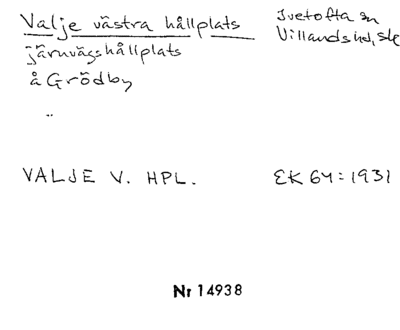 Valje västra hållplats
Ivetofta sn
Villands hd, sk
järnvägshållplats
å Grödby
"
VALJE V. HPL.
EK 64:1931
Nr 14938